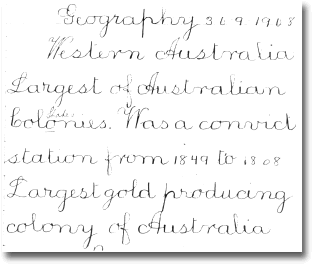 Geography 30 9 1908
Western Australia
Largest of Australian
States
Colonies. Was a convict
station from 1849 to 1868
Largest gold producing
colony of Australia